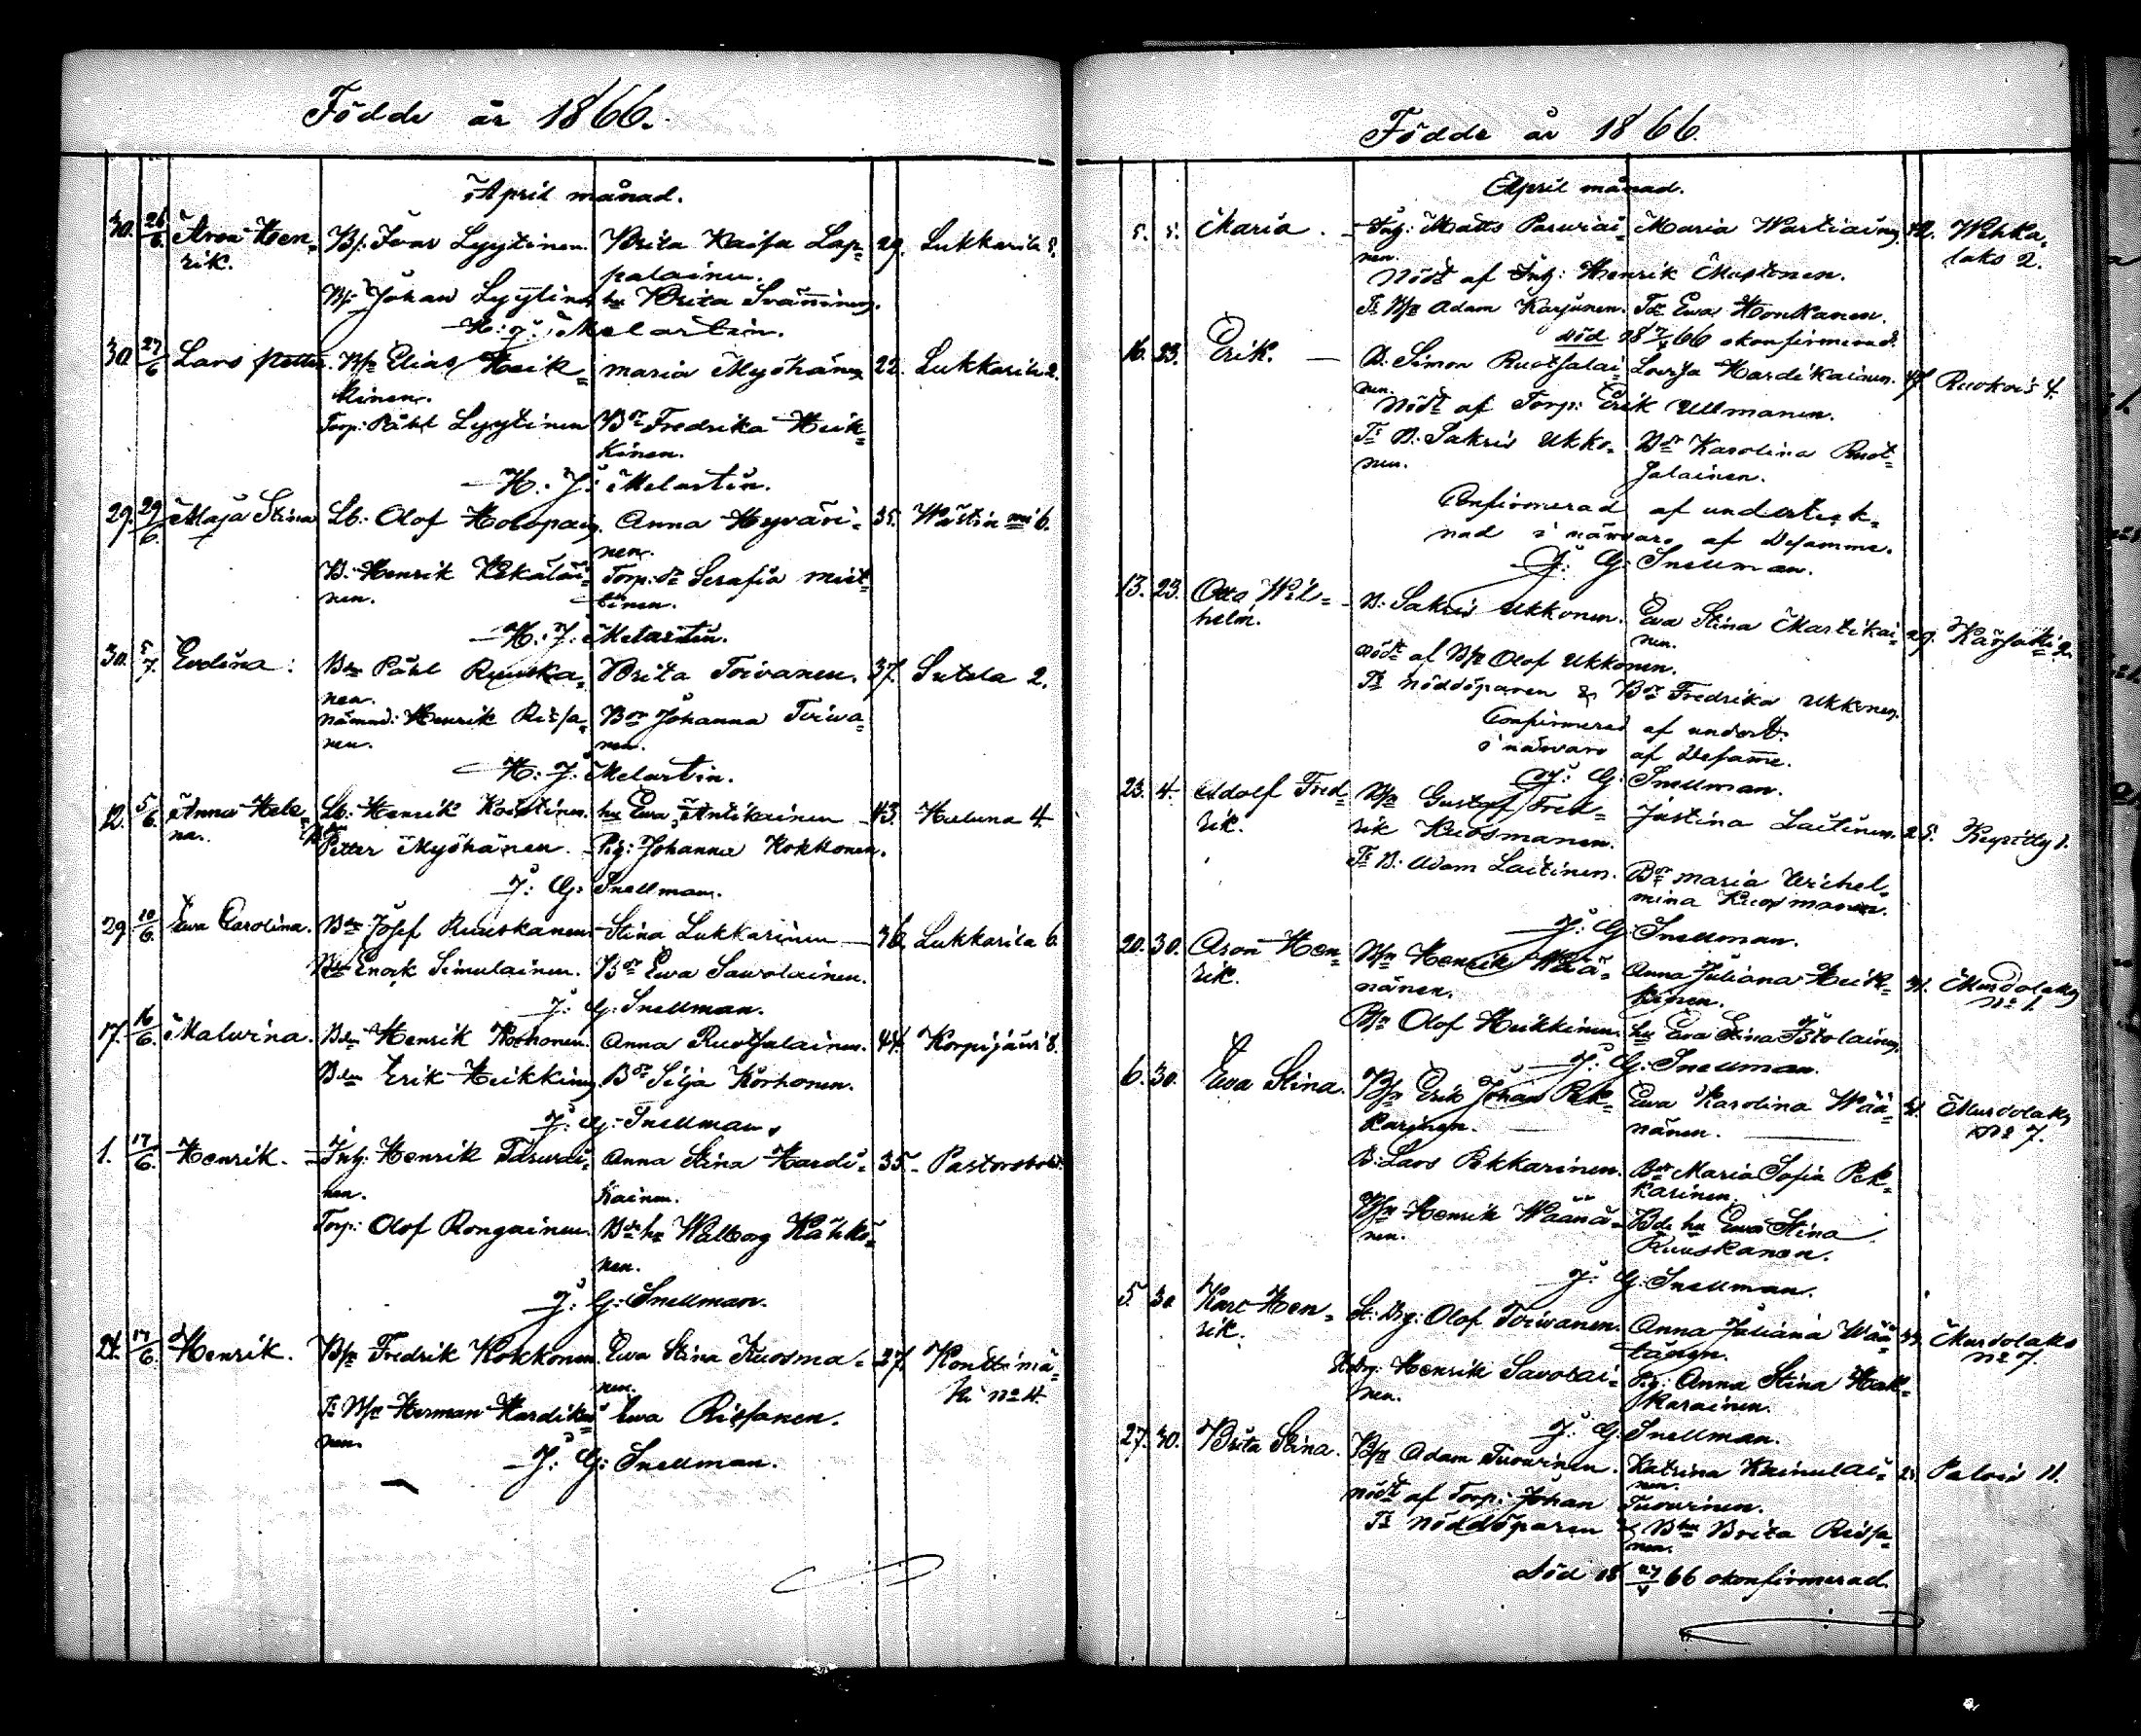 Födde år 1866.
April månad.
30. 26/6. Aron Hen- Bf: Ivar Lyytinen. Brita Kaisa Lap- 29. Lukkarila 8.
rik. palainen.
Bf: Johan Lyytinen hu Brita Sväninen.
H: J: Melartin.
30. 27/6 Lars Petter. Bfn Elias Heik- Maria Myöhänen 22. Lukkarila 2.
kinen.
Torp: Påhl Lyytinen Bdr Fredrika Heik-
kinen.
H: J: Melartin.
29. 29/6. Maja Stina Lb: Olof Holopain. Anna Hyväri- 35. Wästin mi 6.
nen.
B: Henrik Kekäläi- Torp: dr Serafia Miet-
nen. tinen.
H: J: Melartin.
30. 5/7. Evelina: Bdn Påhl Ruuska- Brita Toivanen. 37. Sutela 2.
nen.
nämnd: Henrik Rissa- Bdr Johanna Toiva-
nen. nen.
H: J: Melartin.
12. 5/6. Anna Hele- Lb: Henrik Kostinen. hu Ewa Antikainen 43. Huluna 4.
na. Petter Myöhänen. Pig: Johanna Kokkonen.
J: G: Snellman.
29 10/6. Ewa Carolina. Bdn Josef Ruuskanen Stina Lukkarinen 36. Lukkarila 6.
Bdn Enok Simulainen. Bdr Ewa Sawolainen.
J: G: Snellman.
17. 16/6. Malwina. Bdn Henrik Korhonen. Anna Ruotsalainen. 44. Korpijärvi 8.
Bdn Erik Heikkinen Bdr Silja Korhonen.
J: G: Snellman.
1. 17/6. Henrik. Inh: Henrik Tasurai- Anna Stina Hardi- 35. Pastorsbol
nen. kainen.
Torp: Olof Rongainen. Bde hu Walborg Kähkö-
nen.
J: G: Snellman.
24. 17/6. Henrik. Bfn Fredrik Kokkonen. Ewa Stina Kuosma- 27. Konttimä-
nen. ki No 4.
Ts Bfn Herman Hardikai- Ewa Rissanen.
nen.
J: G: Snellman.
Födde år 1866.
April månad.
5. 5. Maria. Inh: Matts Pasurai- Maria Wartiainen. 42. Wehka-
nen. laks 2.
Nödt af Inh: Henrik Mustonen.
Ts Bfn Adam Karjunen. Ts Ewa Honkanen.
död 18 7/4 66 okonfirmerad.
16. 23. Erik. B. Simon Ruotsalai- Lovisa Hardikainen. 47. Ruokois 4.
nen.
Nödt af Torp: Erik Ullmanen.
Ts B: Sakris Ukko- Bdr Karolina Ruot-
nen. salainen.
Confirmerad af underteck-
nad i närvaro af Desamme.
J: G: Snellman.
13. 23. Otto Wil- B: Sakris Ukkonen. Ewa Stina Martikai- 29. Kärsäki 2.
helm. nen.
nödt af Bfn Olof Ukkonen.
Ts nöddöparen & Bdr Fredrika Ukkonen.
Confirmerad af undert.
i närvaro af Desamme.
J: G: Snellman.
23. 4. Adolf Fred- Bfn Gustaf Fred- Justina Laitinen. 25. Keyritty 1.
rik. rik Kuosmanen.
Ts B: Adam Laitinen. Bdr Maria Wilhel-
mina Kuosmanen.
J: G: Snellman.
20. 30. Aron Hen- Bfn Henrik Wää- Anna Juliana Heik- 31. Murdolaks
rik. nänen. kinen. No 1.
Bfn Olof Heikkinen. hu Ewa Stina Itolainen.
J: G: Snellman.
6. 30. Ewa Stina. Bfn Erik Johan Pek- Ewa Karolina Wää- 31. Murdolaks
karinen. nänen. No 7.
B: Lars Pekkarinen. Bdr Maria Sofia Pek-
karinen.
Bfn Henrik Wäänä- Bde hu Ewa Stina
nen. Ruuskanen.
J: G: Snellman.
5. 30. Karl Hen- St: Drg: Olof Toivanen. Anna Juliana Wää- 33. Murdolaks
rik. tänen. No 7.
Henrik Savolai- Pig: Anna Stina Hak-
nen. karainen.
J: G: Snellman.
27. 30. Brita Stina. Bfn Adam Tuovinen. Katrina Kainulai- 25 Palois 11.
nen.
nödt af Torp: Johan Tuovinen.
Ts nöddöparen & Bhu Brita Rissa-
nen.
död 18 29/4 66 okonfirmerad.